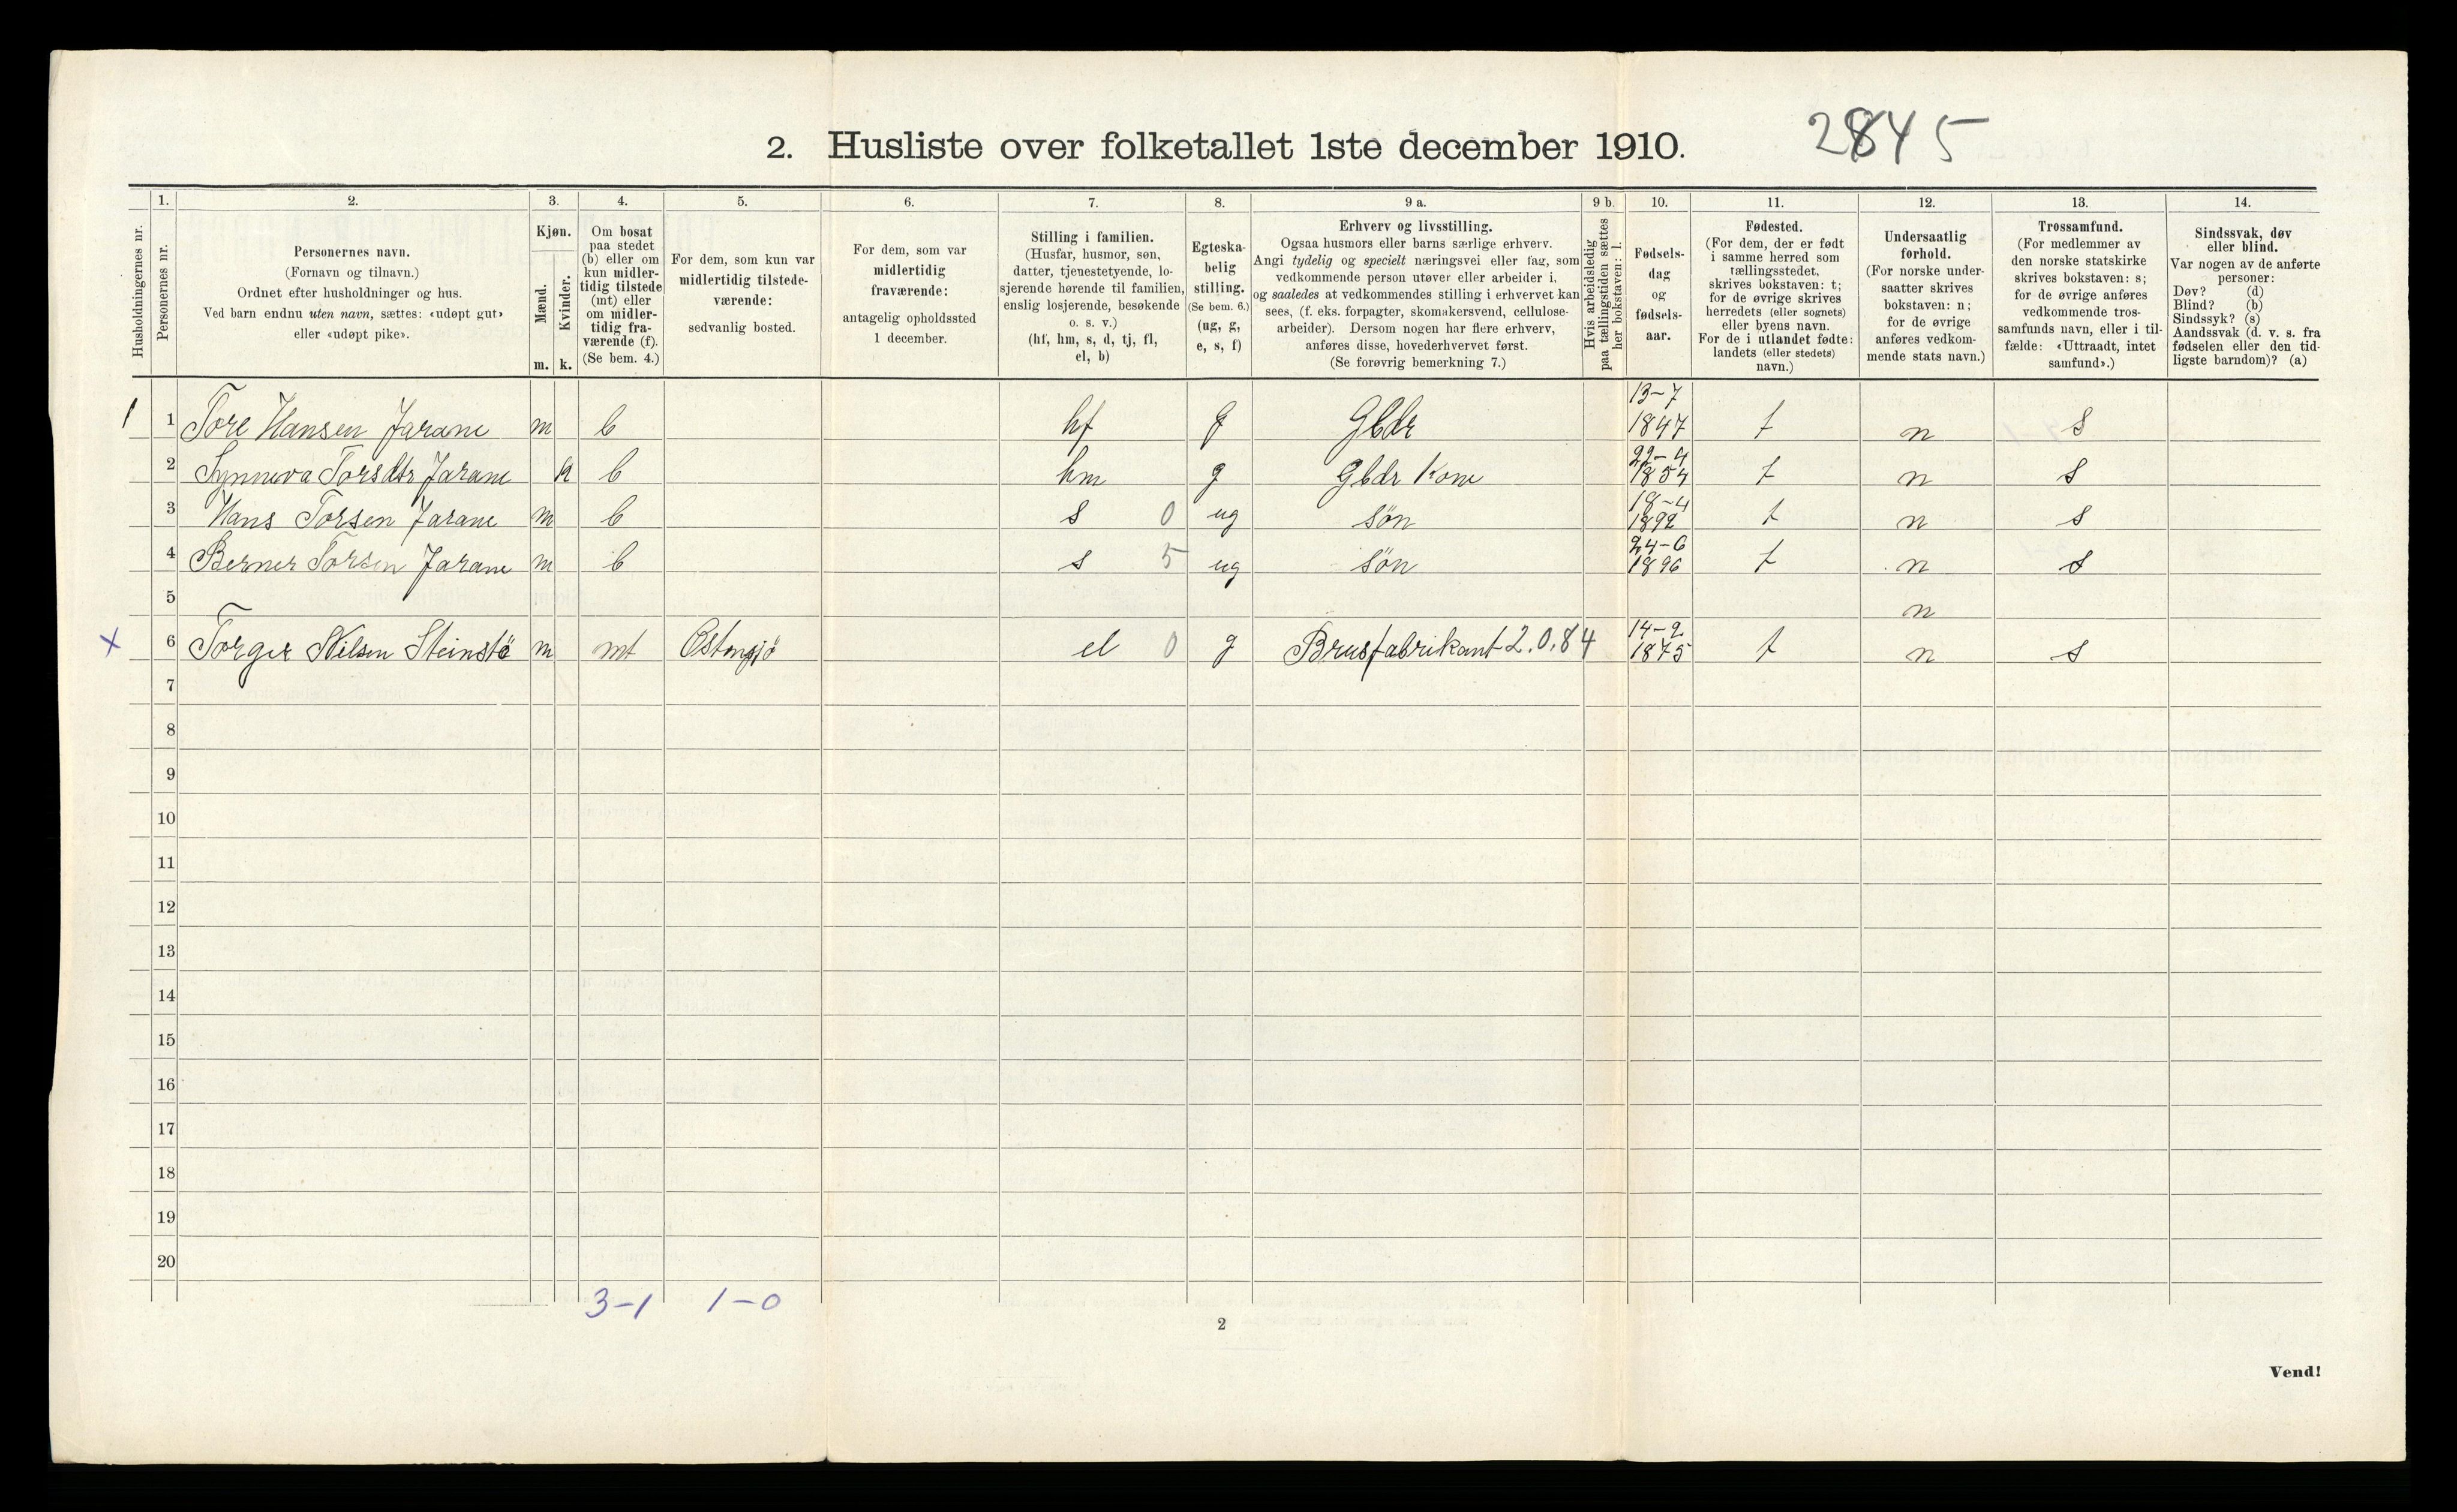 2. Husliste over folketallet 1ste december 1910.
2845
Husholdningernes nr.
1.
Personernes nr.
2.
Personernes navn.
(Fornavn og tilnavn.)
Ordnet efter husholdninger og hus.
Ved barn endnu uten navn, sættes: «udøpt gut»
eller «udøpt pike».
3.
Kjøn.
Mænd.
Kvinder.
m. k.
4.
Om bosat
paa stedet
(b) eller om
kun midler-
tidig tilstede
(mt) eller
om midler-
tidig fra-
værende (f).
(Se bem. 4.)
5.
For dem, som kun var
midlertidig tilstede-
værende:
sedvanlig bosted.
6.
For dem, som var
midlertidig
fraværende:
antagelig opholdssted
1 december.
7.
Stilling i familien.
(Husfar, husmor, søn,
datter, tjenestetyende, lo-
sjerende hørende til familien,
enslig losjerende, besøkende
o. s. v.)
(hf, hm, s, d, tj, fl,
el, b)
8.
Egteska-
belig
stilling.
(Se bem. 6.)
(ug, g,
e, s, f)
9 a.
Erhverv og livsstilling.
Ogsaa husmors eller barns særlige erhverv.
Angi tydelig og specielt næringsvei eller fag, som
vedkommende person utøver eller arbeider i,
og saaledes at vedkommendes stilling i erhvervet kan
sees, (f. eks. forpagter, skomakersvend, cellulose-
arbeider). Dersom nogen har flere erhverv,
anføres disse, hovederhvervet først.
(Se forøvrig bemerkning 7.)
9 b.
Hvis arbeidsledig
paa tællingstiden sættes
her bokstaven: l.
10.
Fødsels-
dag
og
fødsels-
aar.
11.
Fødested.
(For dem, der er født
i samme herred som
tællingsstedet,
skrives bokstaven: t;
for de øvrige skrives
herredets (eller sognets)
eller byens navn.
For de i utlandet fødte:
landets (eller stedets)
navn.)
12.
Undersaatlig
forhold.
(For norske under-
saatter skrives
bokstaven: n;
for de øvrige
anføres vedkom-
mende stats navn.)
13.
Trossamfund.
(For medlemmer av
den norske statskirke
skrives bokstaven: s;
for de øvrige anføres
vedkommende tros-
samfunds navn, eller i til-
fælde: «Uttraadt, intet
samfund».)
14.
Sindssvak, døv
eller blind.
Var nogen av de anførte
personer:
Døv? (d)
Blind? (b)
Sindssyk? (s)
Aandssvak (d. v. s. fra
fødselen eller den tid-
ligste barndom)? (a)
1 1 Tore Hansen Jarane m b hf g Gbdr 13-7 1847 t n s
2 Synneva Torsdtr Jarane k b hm g Gbdr Kone 22-4 1854 t n s
3 Hans Torsen Jarane m b s 0 ug søn 18-4 1892 t n s
4 Berner Torsen Jarane m b s 5 ug søn 24-6 1896 t n s
5 n
x 6 Torger Nilsen Steinstö m mt Ostensjö el 0 g Brusfabrikant 2.0.84 14-2 1875 t n s
7
8
9
10
11
12
13
14
15
16
17
18
19
20
3-1 1-0
2
Vend!